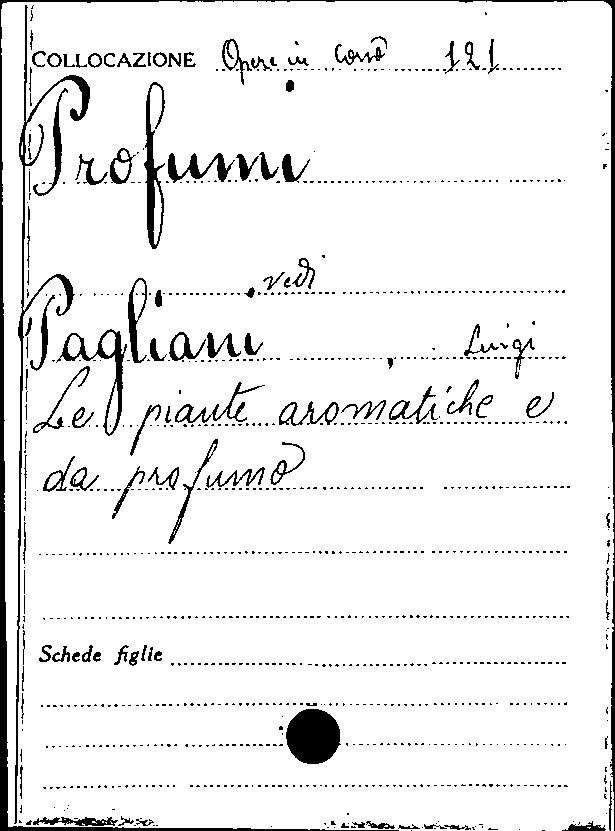 COLLOCAZIONE Opere in corso 121
Profumi
vedi
Pagliani, Luigi
Le piante aromatiche e
da profumo
Schede figlie